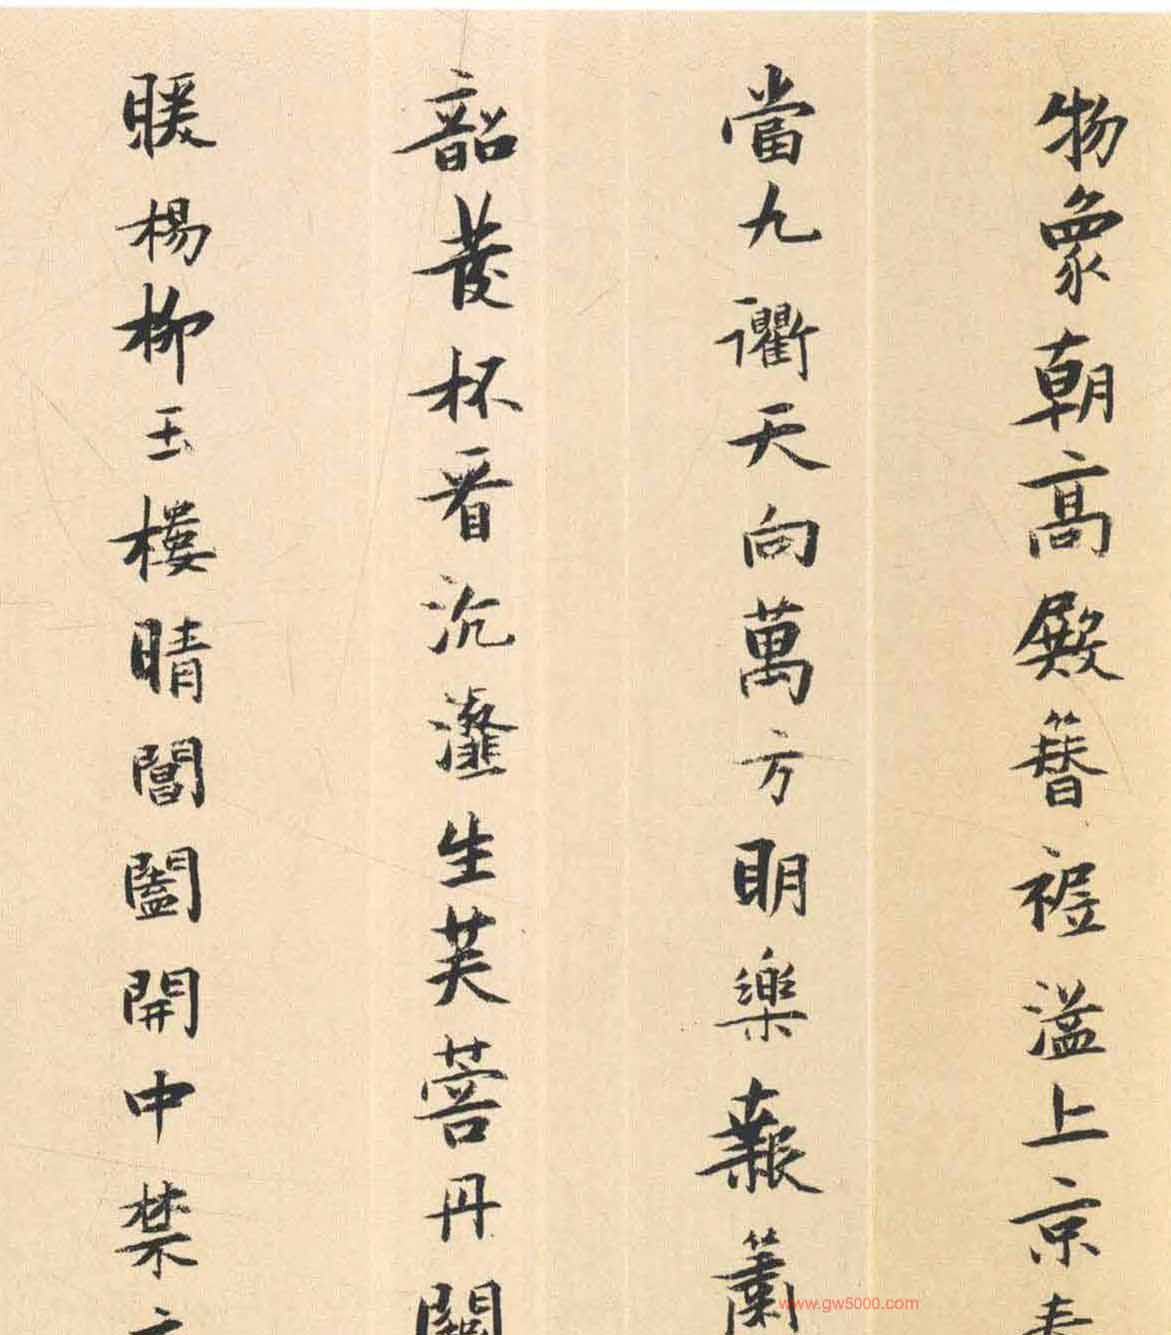 物象朝高殿簪裾溢上京春
當九衢天向萬方明樂報簫
韶發杯看沆瀣生芙蓉丹闕
暖楊柳玉樓晴閶闔開中禁
www.gw5000.com